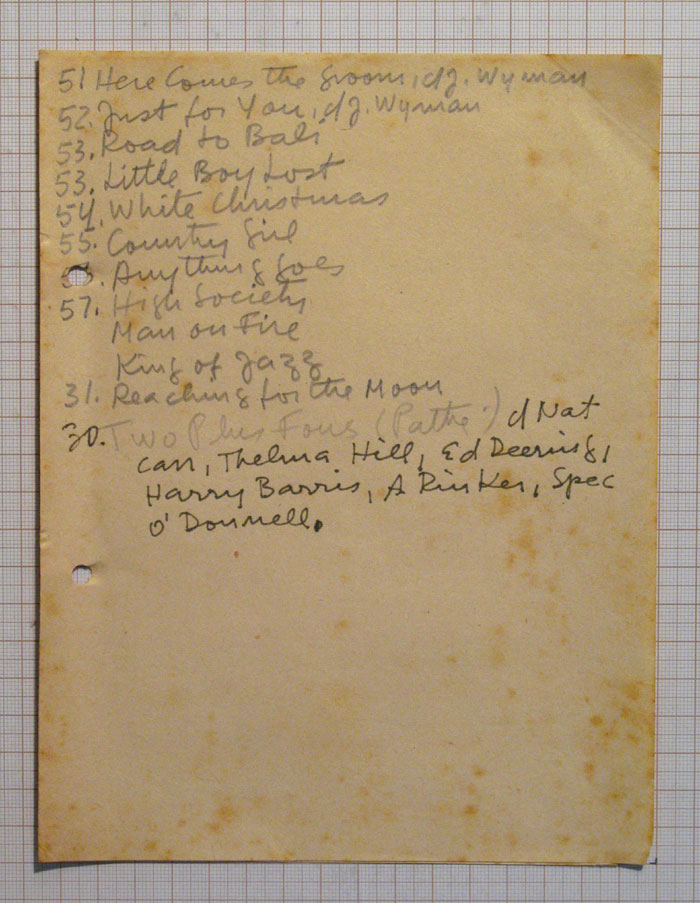 51 Here Comes the Groom, d/J. Wyman
52. Just for You, d/J. Wyman
53. Road to Bali
53. Little Boy Lost
54. White Christmas
55. Country Girl
56. Anything Goes
57. High Society
Man on Fire
King of Jazz
31. Reaching for the Moon
30. Two Plus Fours (Pathe) d/ Nat
Carr, Thelma Hill, Ed Deering,
Harry Barris, A Rinker, Spec
O'Donnell.